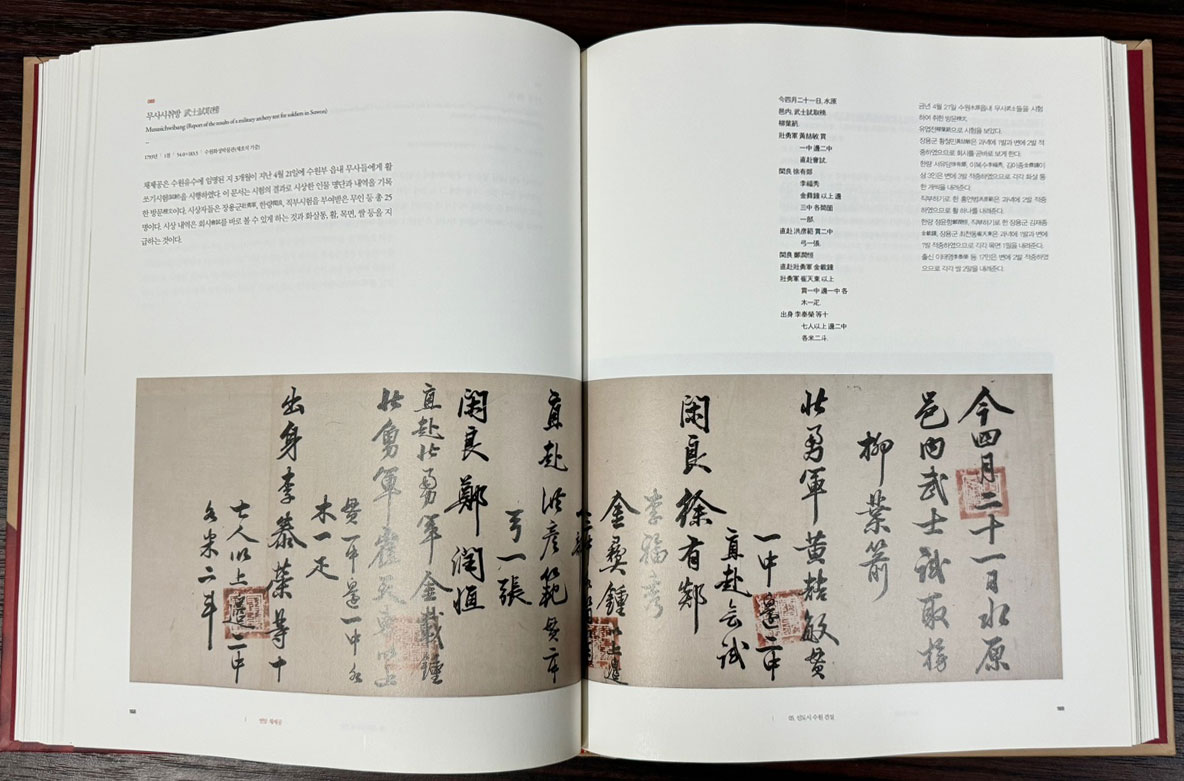 무사시취방 武士試取榜
Musasichwibang (Report of the results of a military archery test for soldiers in Suwon)
1793년 | 1점 | 54.6×183.5 | 수원화성박물관(채호석 기증)
채제공은 수원유수에 임명된 지 3개월이 지난 4월 21일에 수원부 읍내 무사들에게 활
쏘기시험을 시행하였다. 이 문서는 시험의 결과로 시상한 인물 명단과 내역을 기록
한 방문이다. 시상자들은 장용군, 한량, 직부시험을 부여받은 무인 등 총 25
명이다. 시상 내역은 회시를 바로 볼 수 있게 하는 것과 화살통, 활, 목면, 쌀 등을 지
급하는 것이다.
今四月二十一日, 水原
邑內, 武士試取榜.
柳葉箭.
壯勇軍 黃喆敏 貫
一中 邊二中
直赴會試.
閑良 徐有郯
李福秀
金彛鍾 以上 邊
三中 各筒箇
一部.
直赴 洪彦範 貫二中
弓一張.
閑良 鄭潤恒
直赴壯勇軍 金載鍾
壯勇軍 崔天東 以上
貫一中 邊一中 各
木一疋.
出身 李泰榮 等十
七人以上 邊二中
各米二斗.
금년 4월 21일 수원 읍내 무사들을 시험
하여 취한 방문.
유엽전으로 시험을 보았다.
장용군 황철민은 과녁에 1발과 변에 2발 적
중하였으므로 회시를 곧바로 보게 한다.
한량 서유담, 이복수, 김이종이
상 3인은 변에 3발 적중하였으므로 각각 화살 통
한 개씩을 내려준다.
직부하기로 한 홍언범은 과녁에 2발 적중
하였으므로 활 하나를 내려준다.
한량 정윤항, 직부하기로 한 장용군 김재종
, 장용군 최천동은 과녁에 1발과 변에
1발 적중하였으므로 각각 목면 1필을 내려준다.
출신 이태영 등 17인은 변에 2발 적중하였
으므로 각각 쌀 2말을 내려준다.
今四月二十一日水原
邑內武士試取榜
柳葉箭
壯勇軍黃喆敏貫
一中邊二中
直赴会試
閑良徐有郯
李福秀
金彛鍾以上邊
直赴洪彦範貫二中
弓一張
閑良鄭潤恒
直赴壯勇軍金載鍾
壯勇軍崔天東以上
貫一中邊一中各
木一疋
出身李泰榮等十
七人以上邊二中
各米二斗
번암 채제공